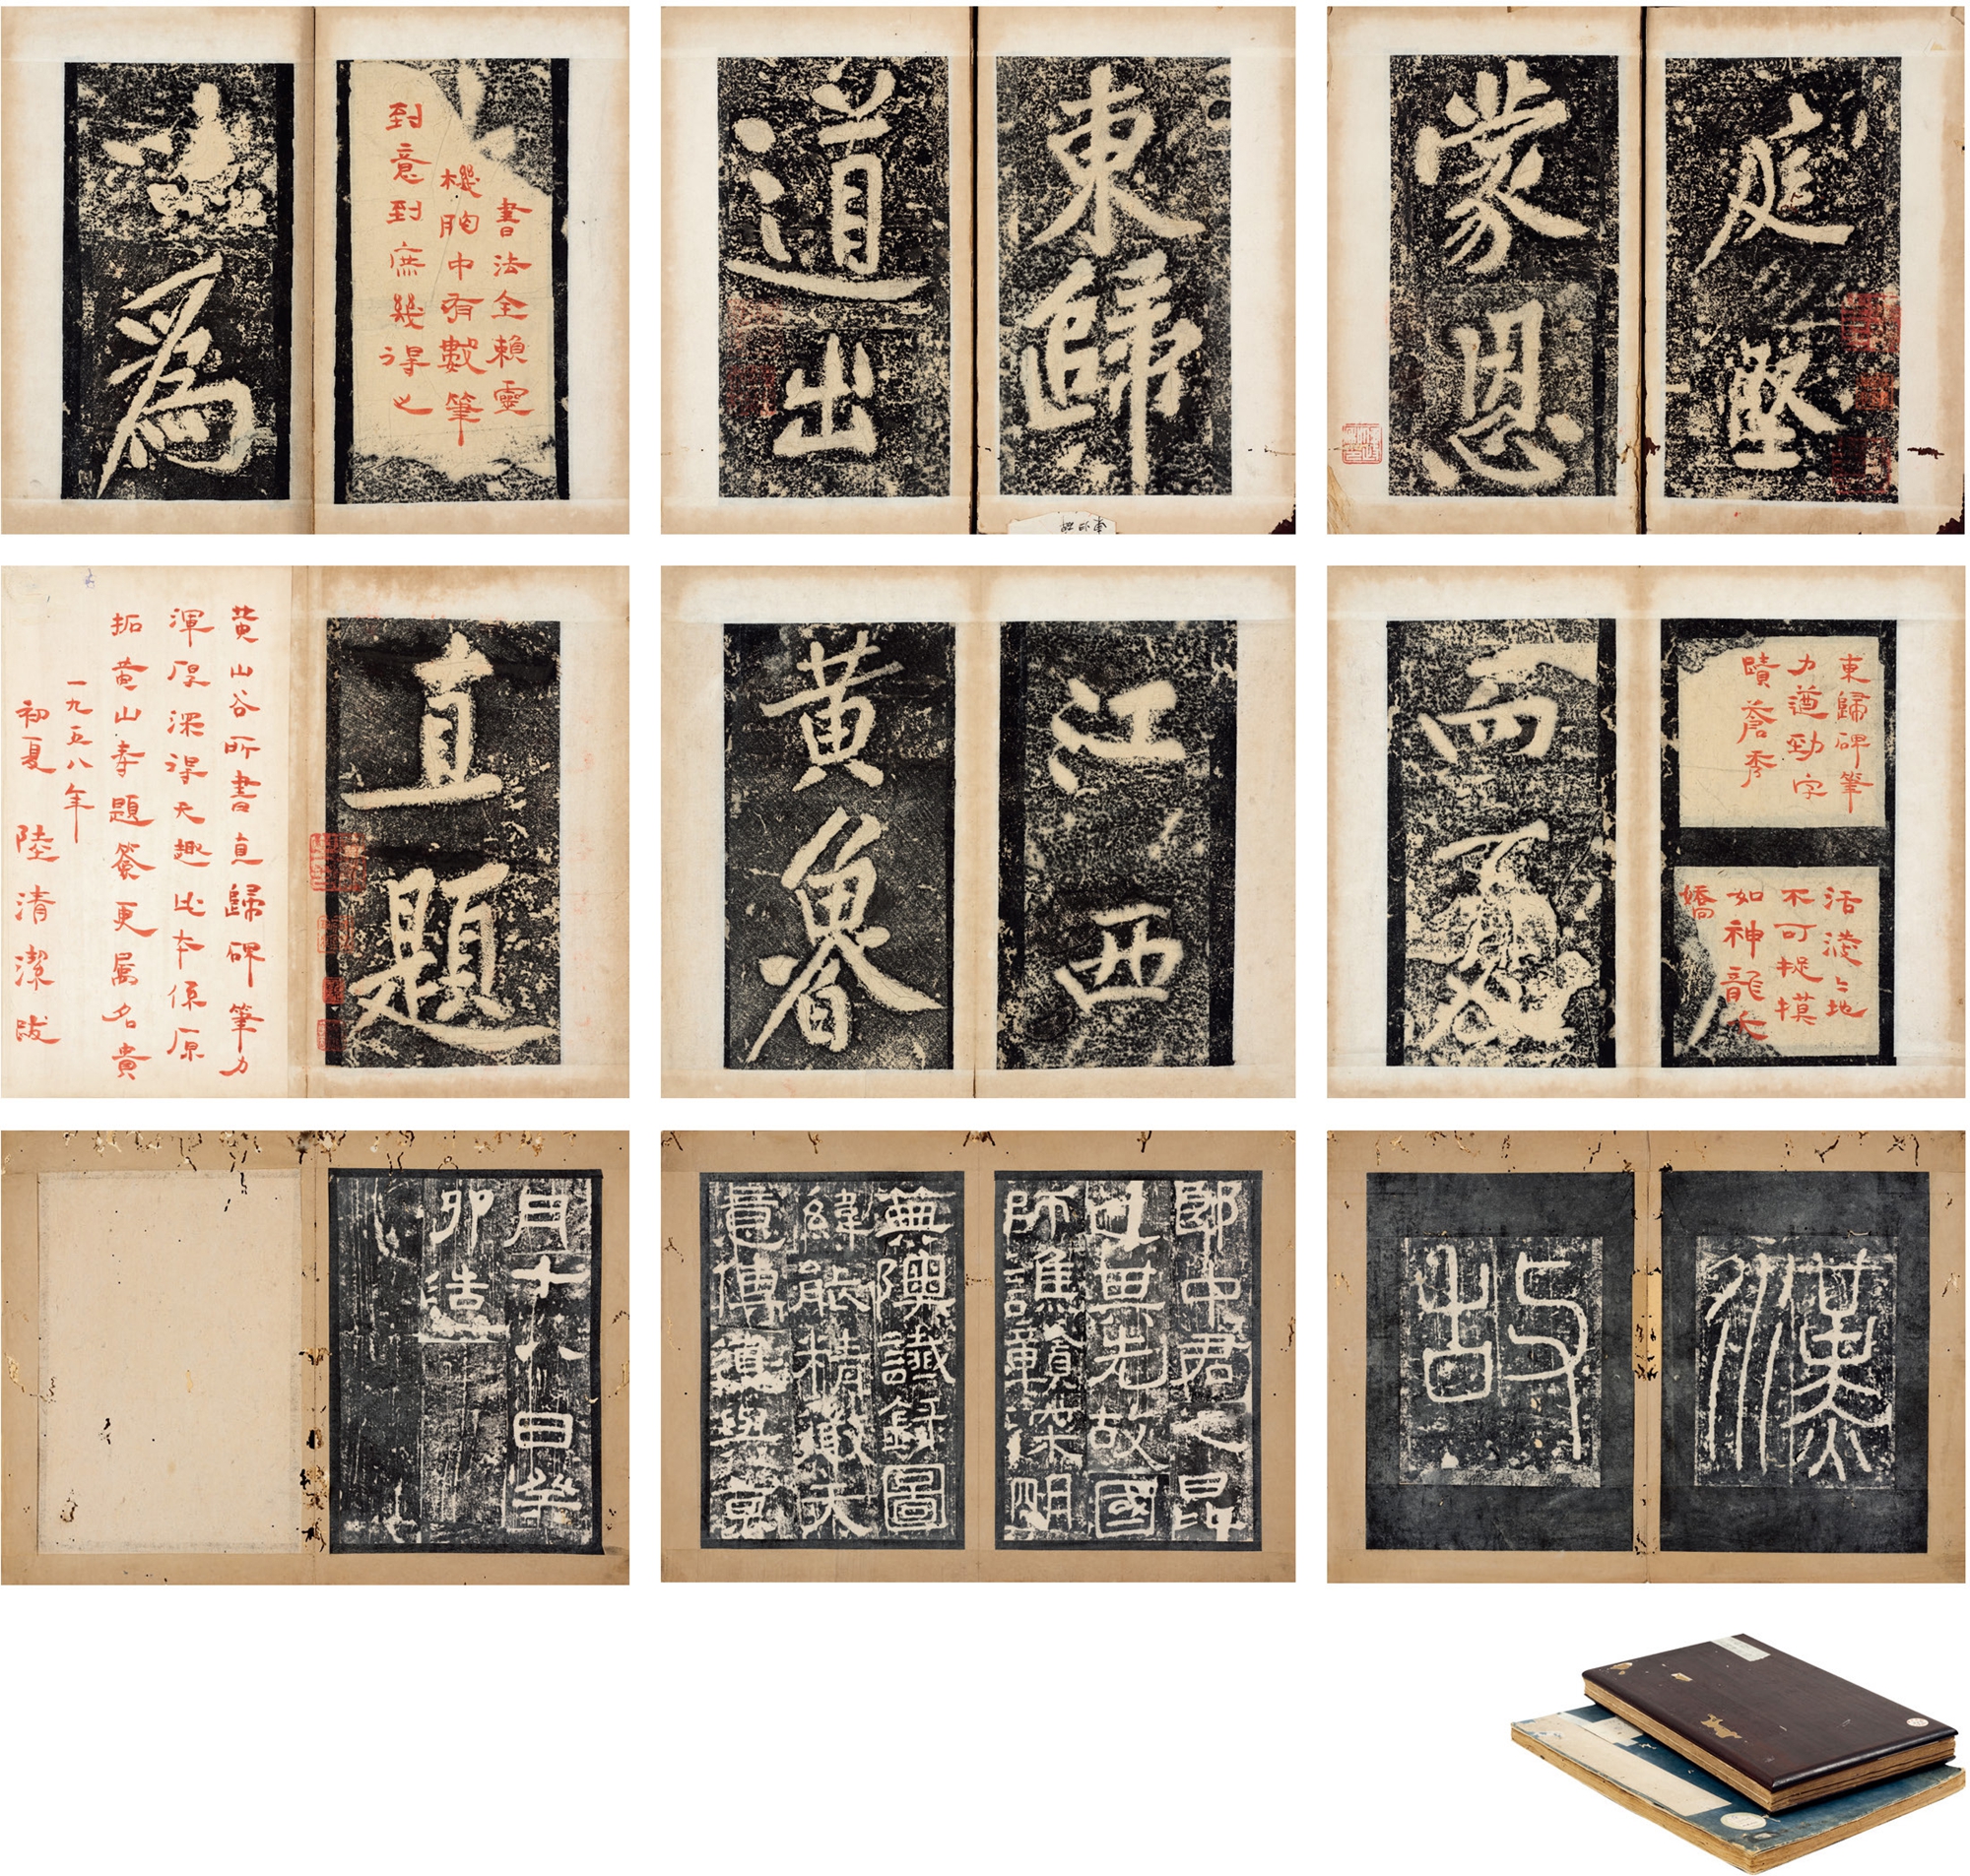 庭堅
蒙恩
東歸
道出
書法全賴靈
機胸中有數筆
到意到庶幾得之
爲
東歸碑筆
力遒勁字
蹟蒼秀
活潑〻地
不可捉摸
如神龍夭
嬌
而
江西
黃魯
直題
黃山谷所書直歸碑筆力
渾厚深得天趣此本係原
拓黃山壽題簽更屬名貴
一九五八年
初夏
陸清潔跋
漢
故
郎中君之昆
也無先故國
師譙贛深明
無隩讖錄圖
緯能精徵夫
意傳道與京
月十八日癸
卯造